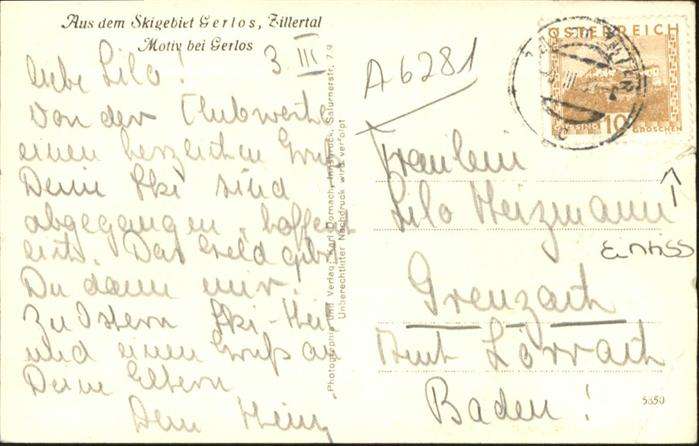 Aus dem Skigebiet Gerlos, Zillertal
Motiv bei Gerlos
3 III
Liebe Lilo!
Von der Clubwerte
einen herzlichen Gruß
Deine Ski sind
abgegangen, hoffent
Das Geld gib
Du dann mir.
Zu Ostern Ski-Heil
und einen Gruß an
Deine Eltern
Dein Heinz
"Photographie und Verlag: Karl Dornach, Innsbruck, Saturnerstr. 79
Unberechtigter Nachdruck wird verfolgt
A6281
ÖSTERREICH
10
GROSCHEN
Fräulein
Lilo Heizmann
Einriss
Grenzach
Amt Lörrach
Baden!
5850